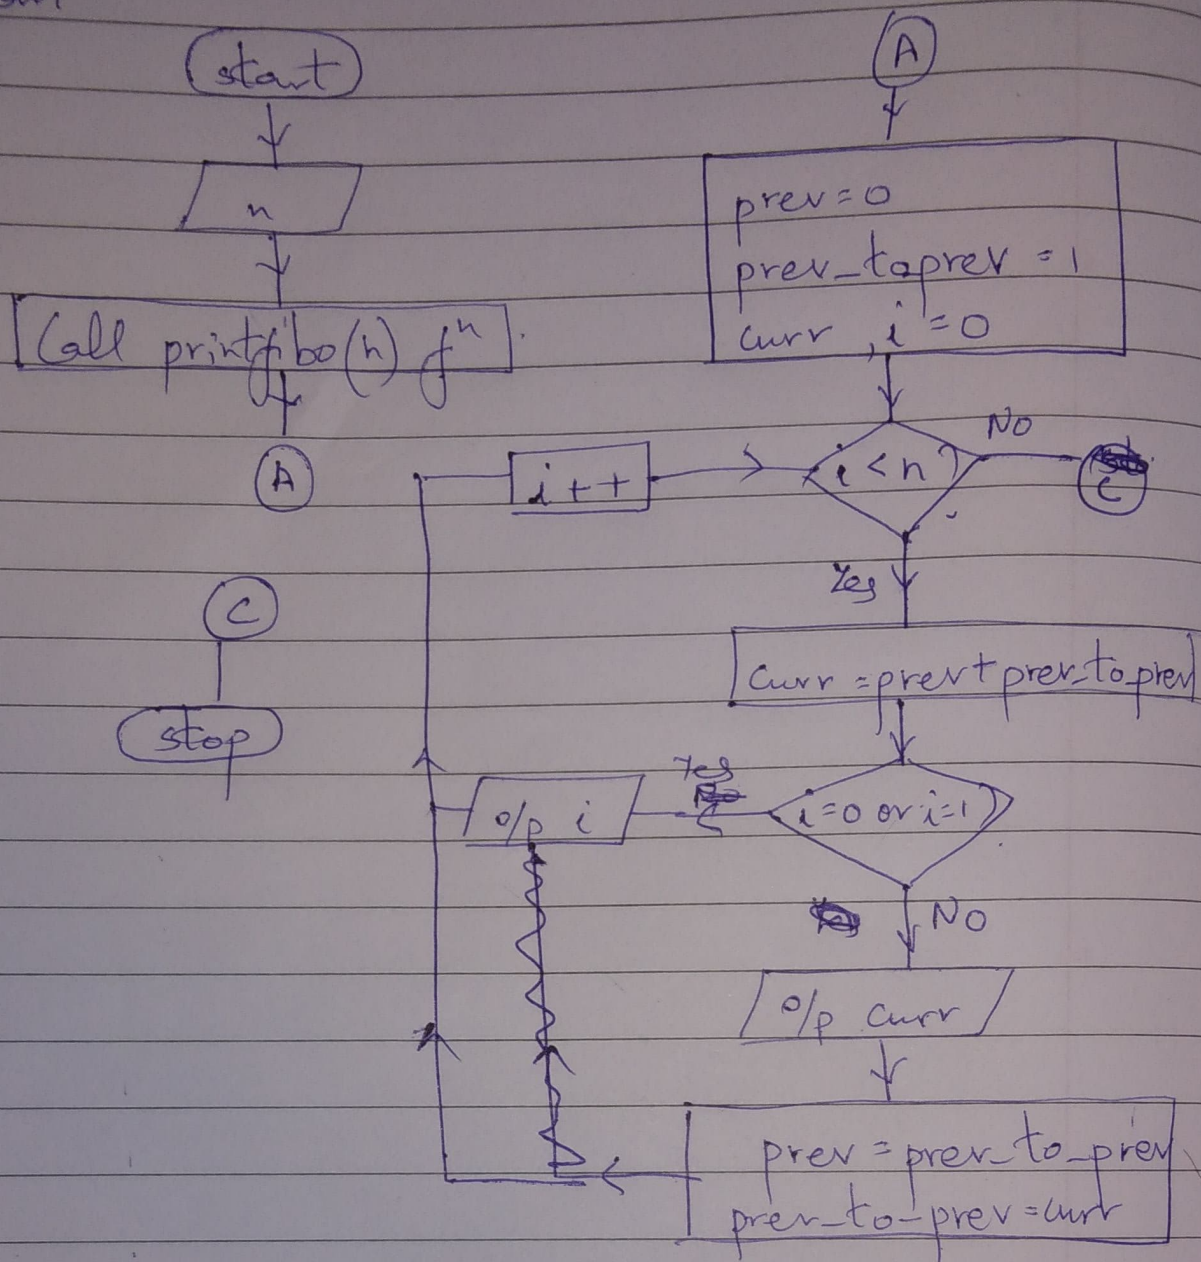 start
n
Call printfibo(n) fⁿ.
A
C
stop
A
prev=0
prev_toprev = 1
curr , i = 0
i++
i < n
NO
C
Yes
curr = prev + prev_to_prev
i=0 or i=1
Yes
o/p i
NO
o/p curr
prev = prev_to_prev
prev_to_prev = curr